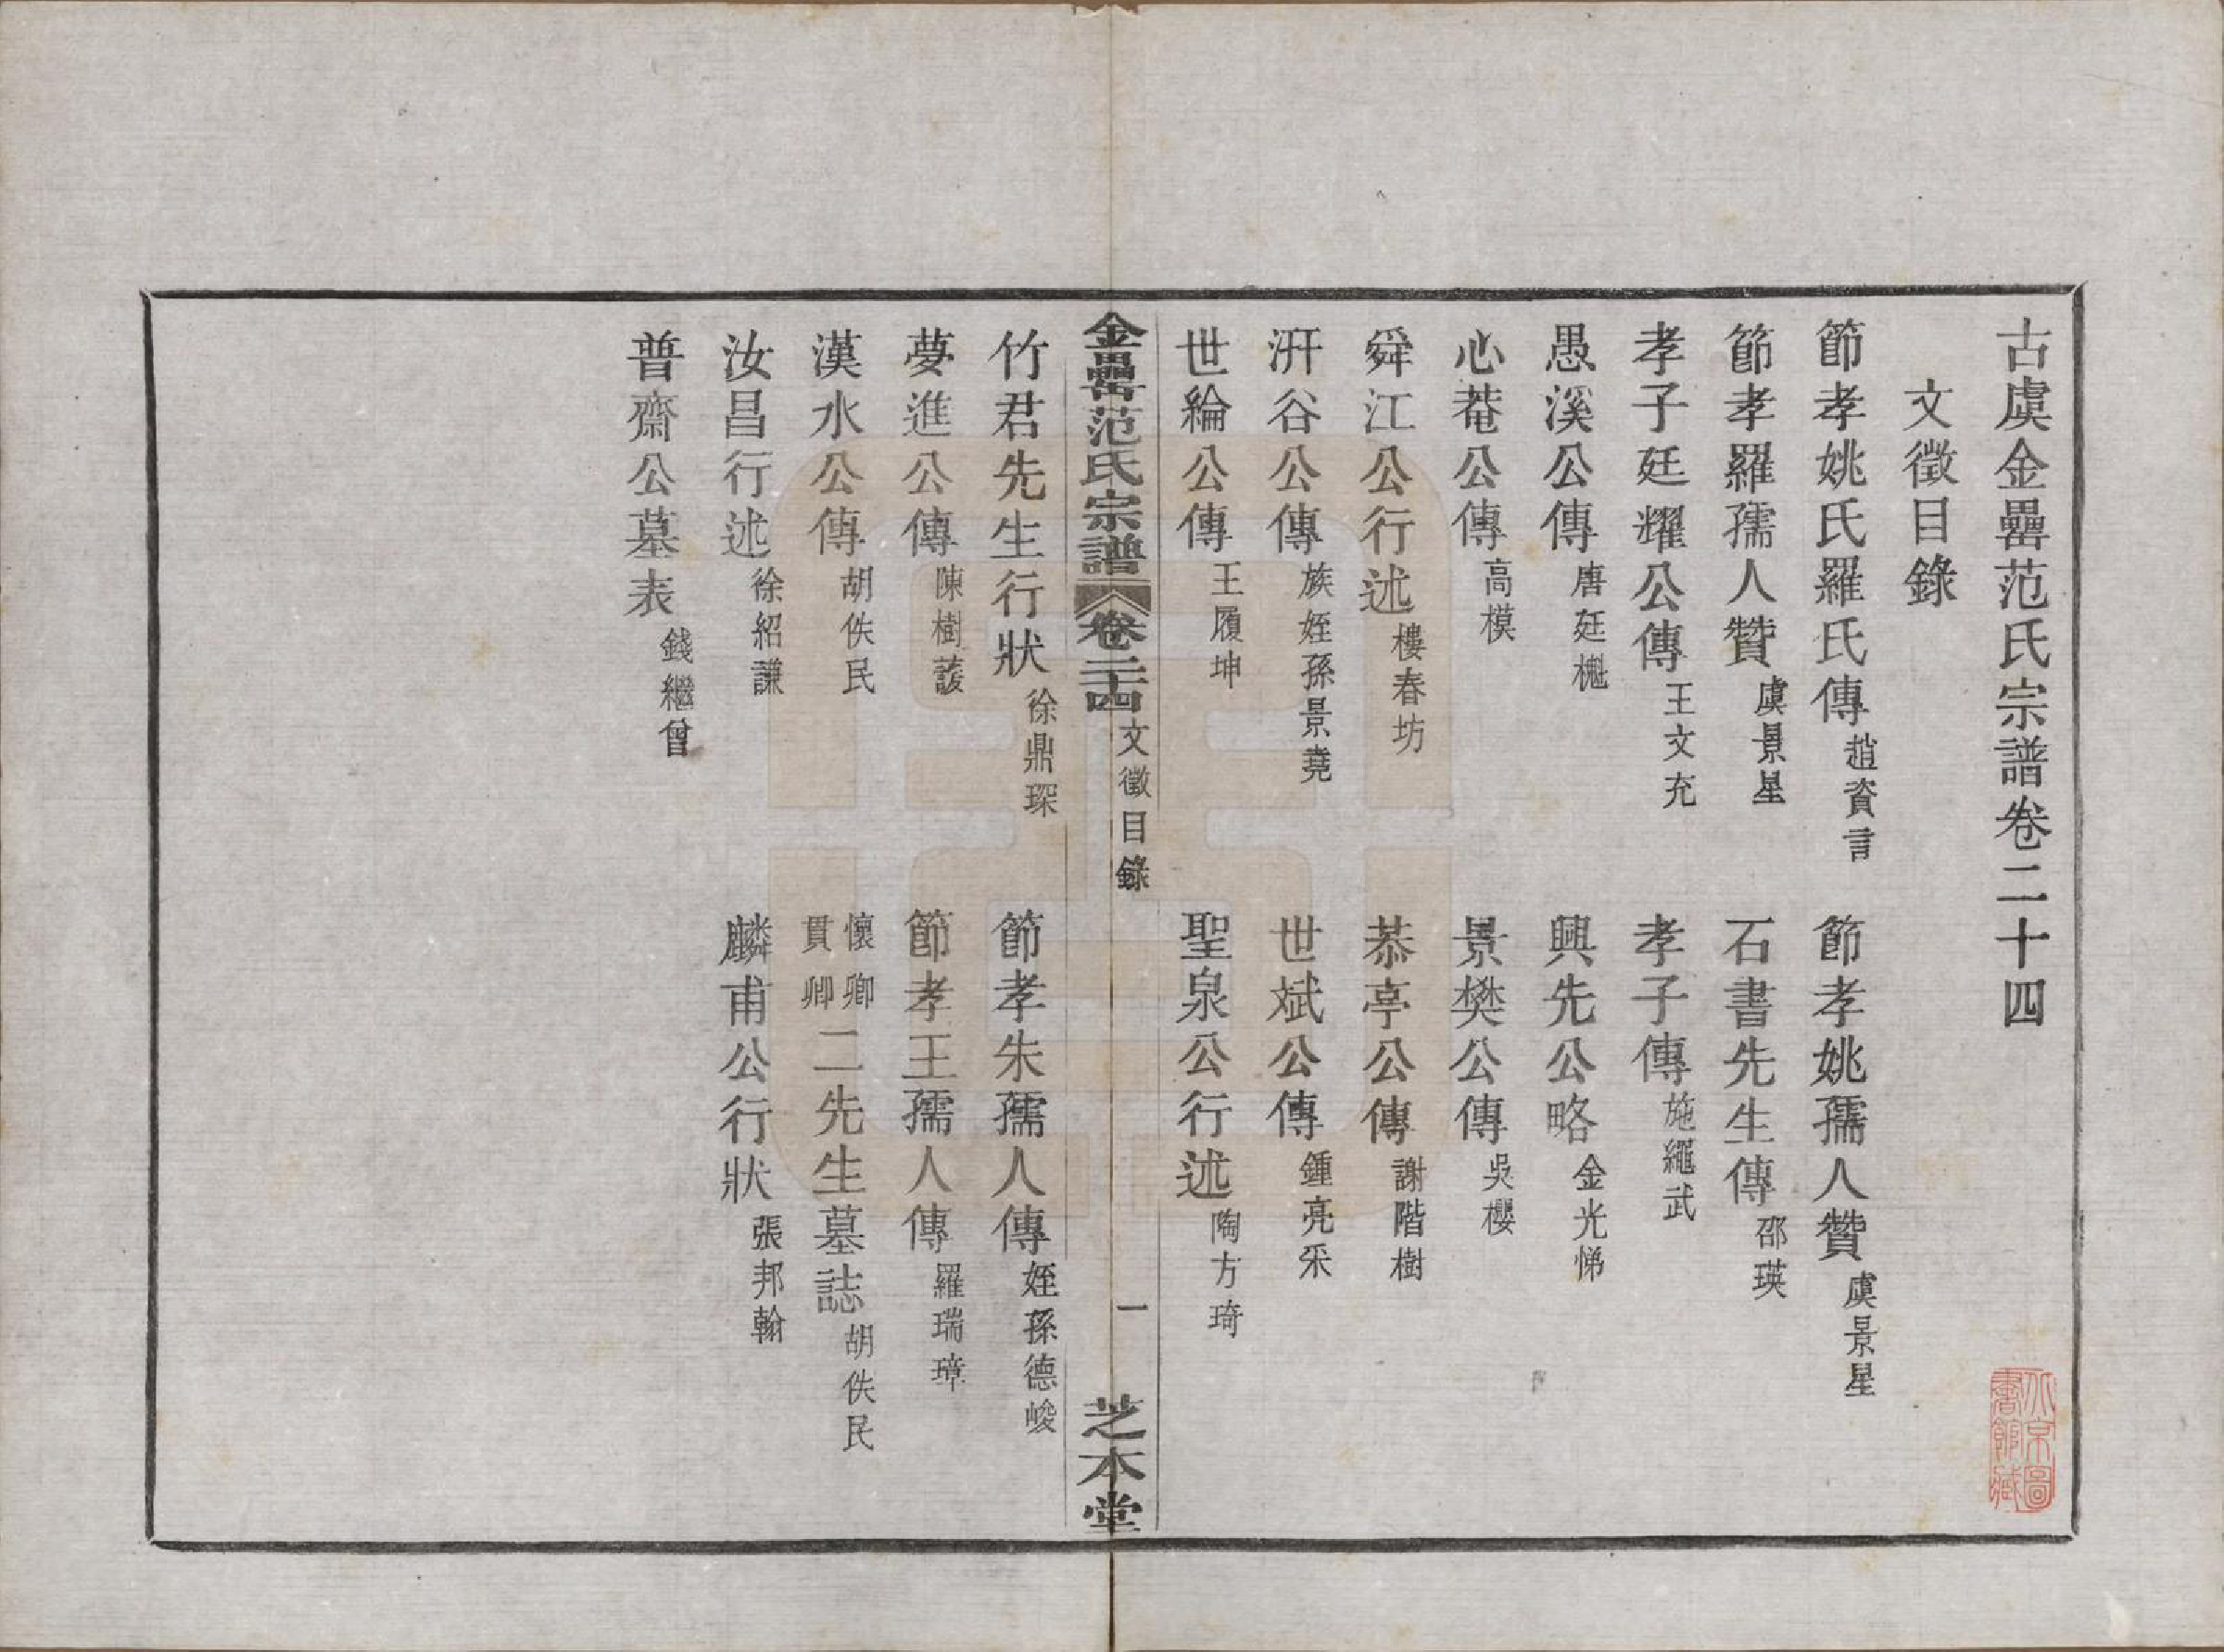 古虞金罍范氏宗譜卷二十四
文徵目錄
節孝姚氏羅氏傳 趙資言 節孝姚孺人贊 虞景星
節孝羅孺人贊 虞景星 石書先生傳 邵瑛
孝子廷耀公傳 王文充 孝子傳 施繩武
愚溪公傳 唐廷樾 興先公略 金光悌
心菴公傳 高模 景樊公傳 吳櫻
舜江公行述 樓春坊 恭亭公傳 謝階樹
汧谷公傳 族姪孫景堯 世斌公傳 鍾亮采
世綸公傳 王履坤 聖泉公行述 陶方琦
金罍范氏宗譜 卷二十四 文徵目錄 一 芝本堂
竹君先生行狀 徐鼎琛 節孝朱孺人傳 姪孫德峻
夢進公傳 陳樹 節孝王孺人傳 羅瑞璋
漢水公傳 胡佚民 懷卿貫卿二先生墓誌 胡佚民
汝昌行述 徐紹謙 麟甫公行狀 張邦翰
普齋公墓表 錢繼曾
北京圖書館藏